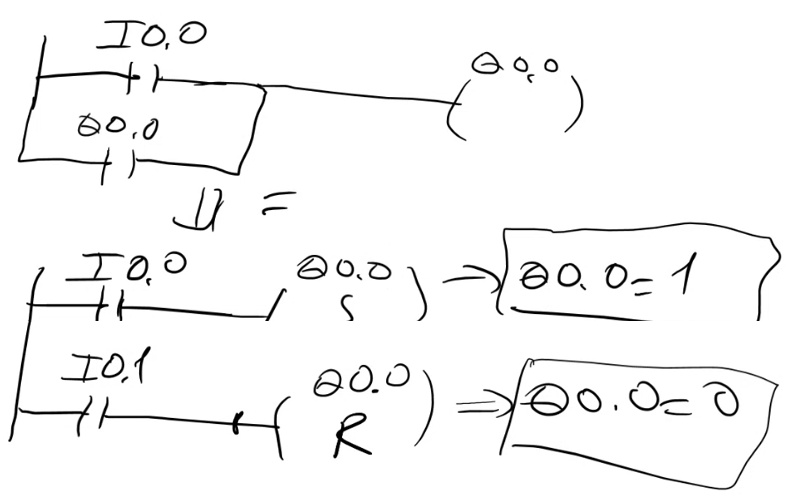 I0.0
Q0.0
Q0.0
=
I0.0 Q0.0 → Q0.0=1
S
I0.1 Q0.0 ⇒ Q0.0=0
R